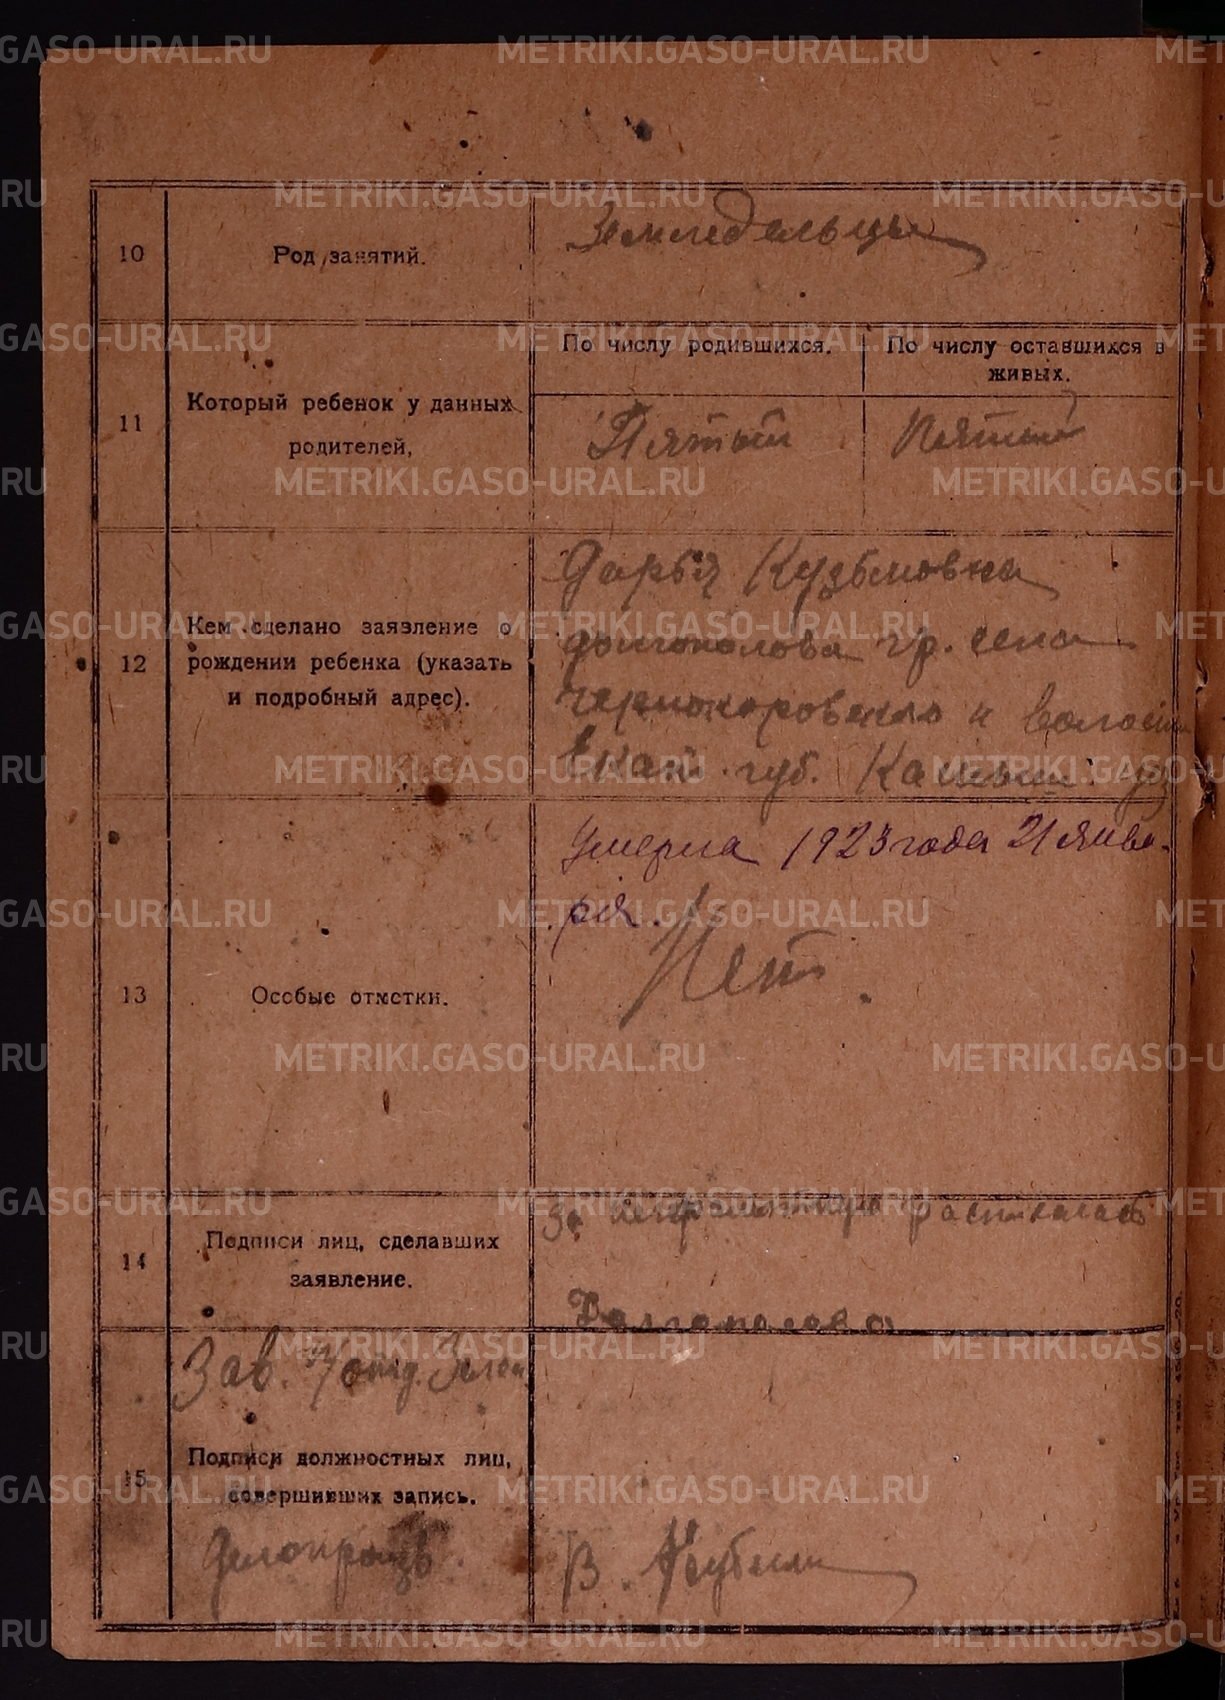 10
Род занятий.
Земледельцы
11
Который ребенок у данных
родителей,
По числу родившихся.
По числу оставшихся в
живых.
Пятый
Пятый
12
Кем сделано заявление о
рождении ребенка (указать
и подробный адрес).
Дарья Кузьмовна
Долгополова гр. села
Черно и волости
Екат. губ. Камыш. у
13
Особые отметки.
Умерла 1923 года 21 янва-
ря.
Нет.
14
Подписи лиц, сделавших
заявление.
За неграмотную расписалась
Долгополова
Зав.
15
Подписи должностных лиц,
совершивших запись.
Делопроизв.
В.
METRIKI.GASO-URAL.RU